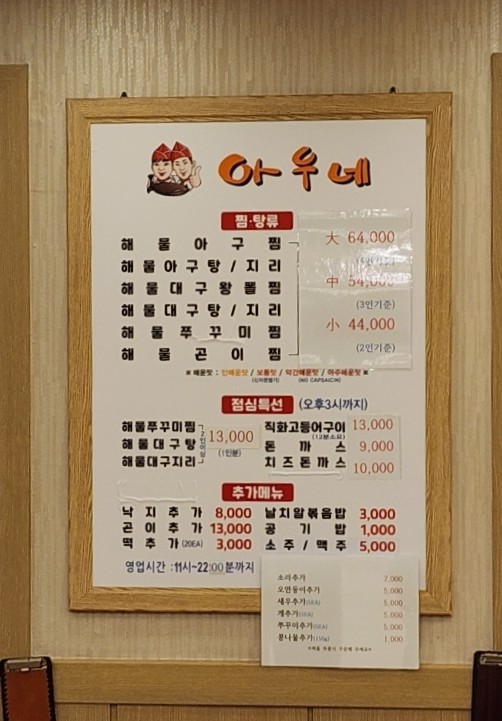 아우네
찜·탕류
해물아구찜
해물아구탕/지리
해물대구왕뽈찜
해물대구탕/지리
해물쭈꾸미찜
해물곤이찜
大 64,000
中 54,000
(3인기준)
小 44,000
(2인기준)
※ 매운맛 : 안매운맛 / 보통맛 / 약간매운맛 / 아주매운맛 ※
(신라면맵기) (NO CAPSAICIN)
점심특선 (오후3시까지)
해물쭈꾸미찜
해물대구탕
해물대구지리
2인이상
13,000
(1인분)
직화고등어구이 13,000
(12분소요)
돈까스 9,000
치즈돈까스 10,000
추가메뉴
낙지추가 8,000 날치알볶음밥 3,000
곤이추가 13,000 공기밥 1,000
떡추가(20EA) 3,000 소주/맥주 5,000
영업시간 :11시~22:00분까지
소라추가 7,000
오만둥이추가 5,000
새우추가(5EA) 5,000
게추가(5EA) 5,000
쭈꾸미추가(5EA) 5,000
콩나물추가(150g) 1,000